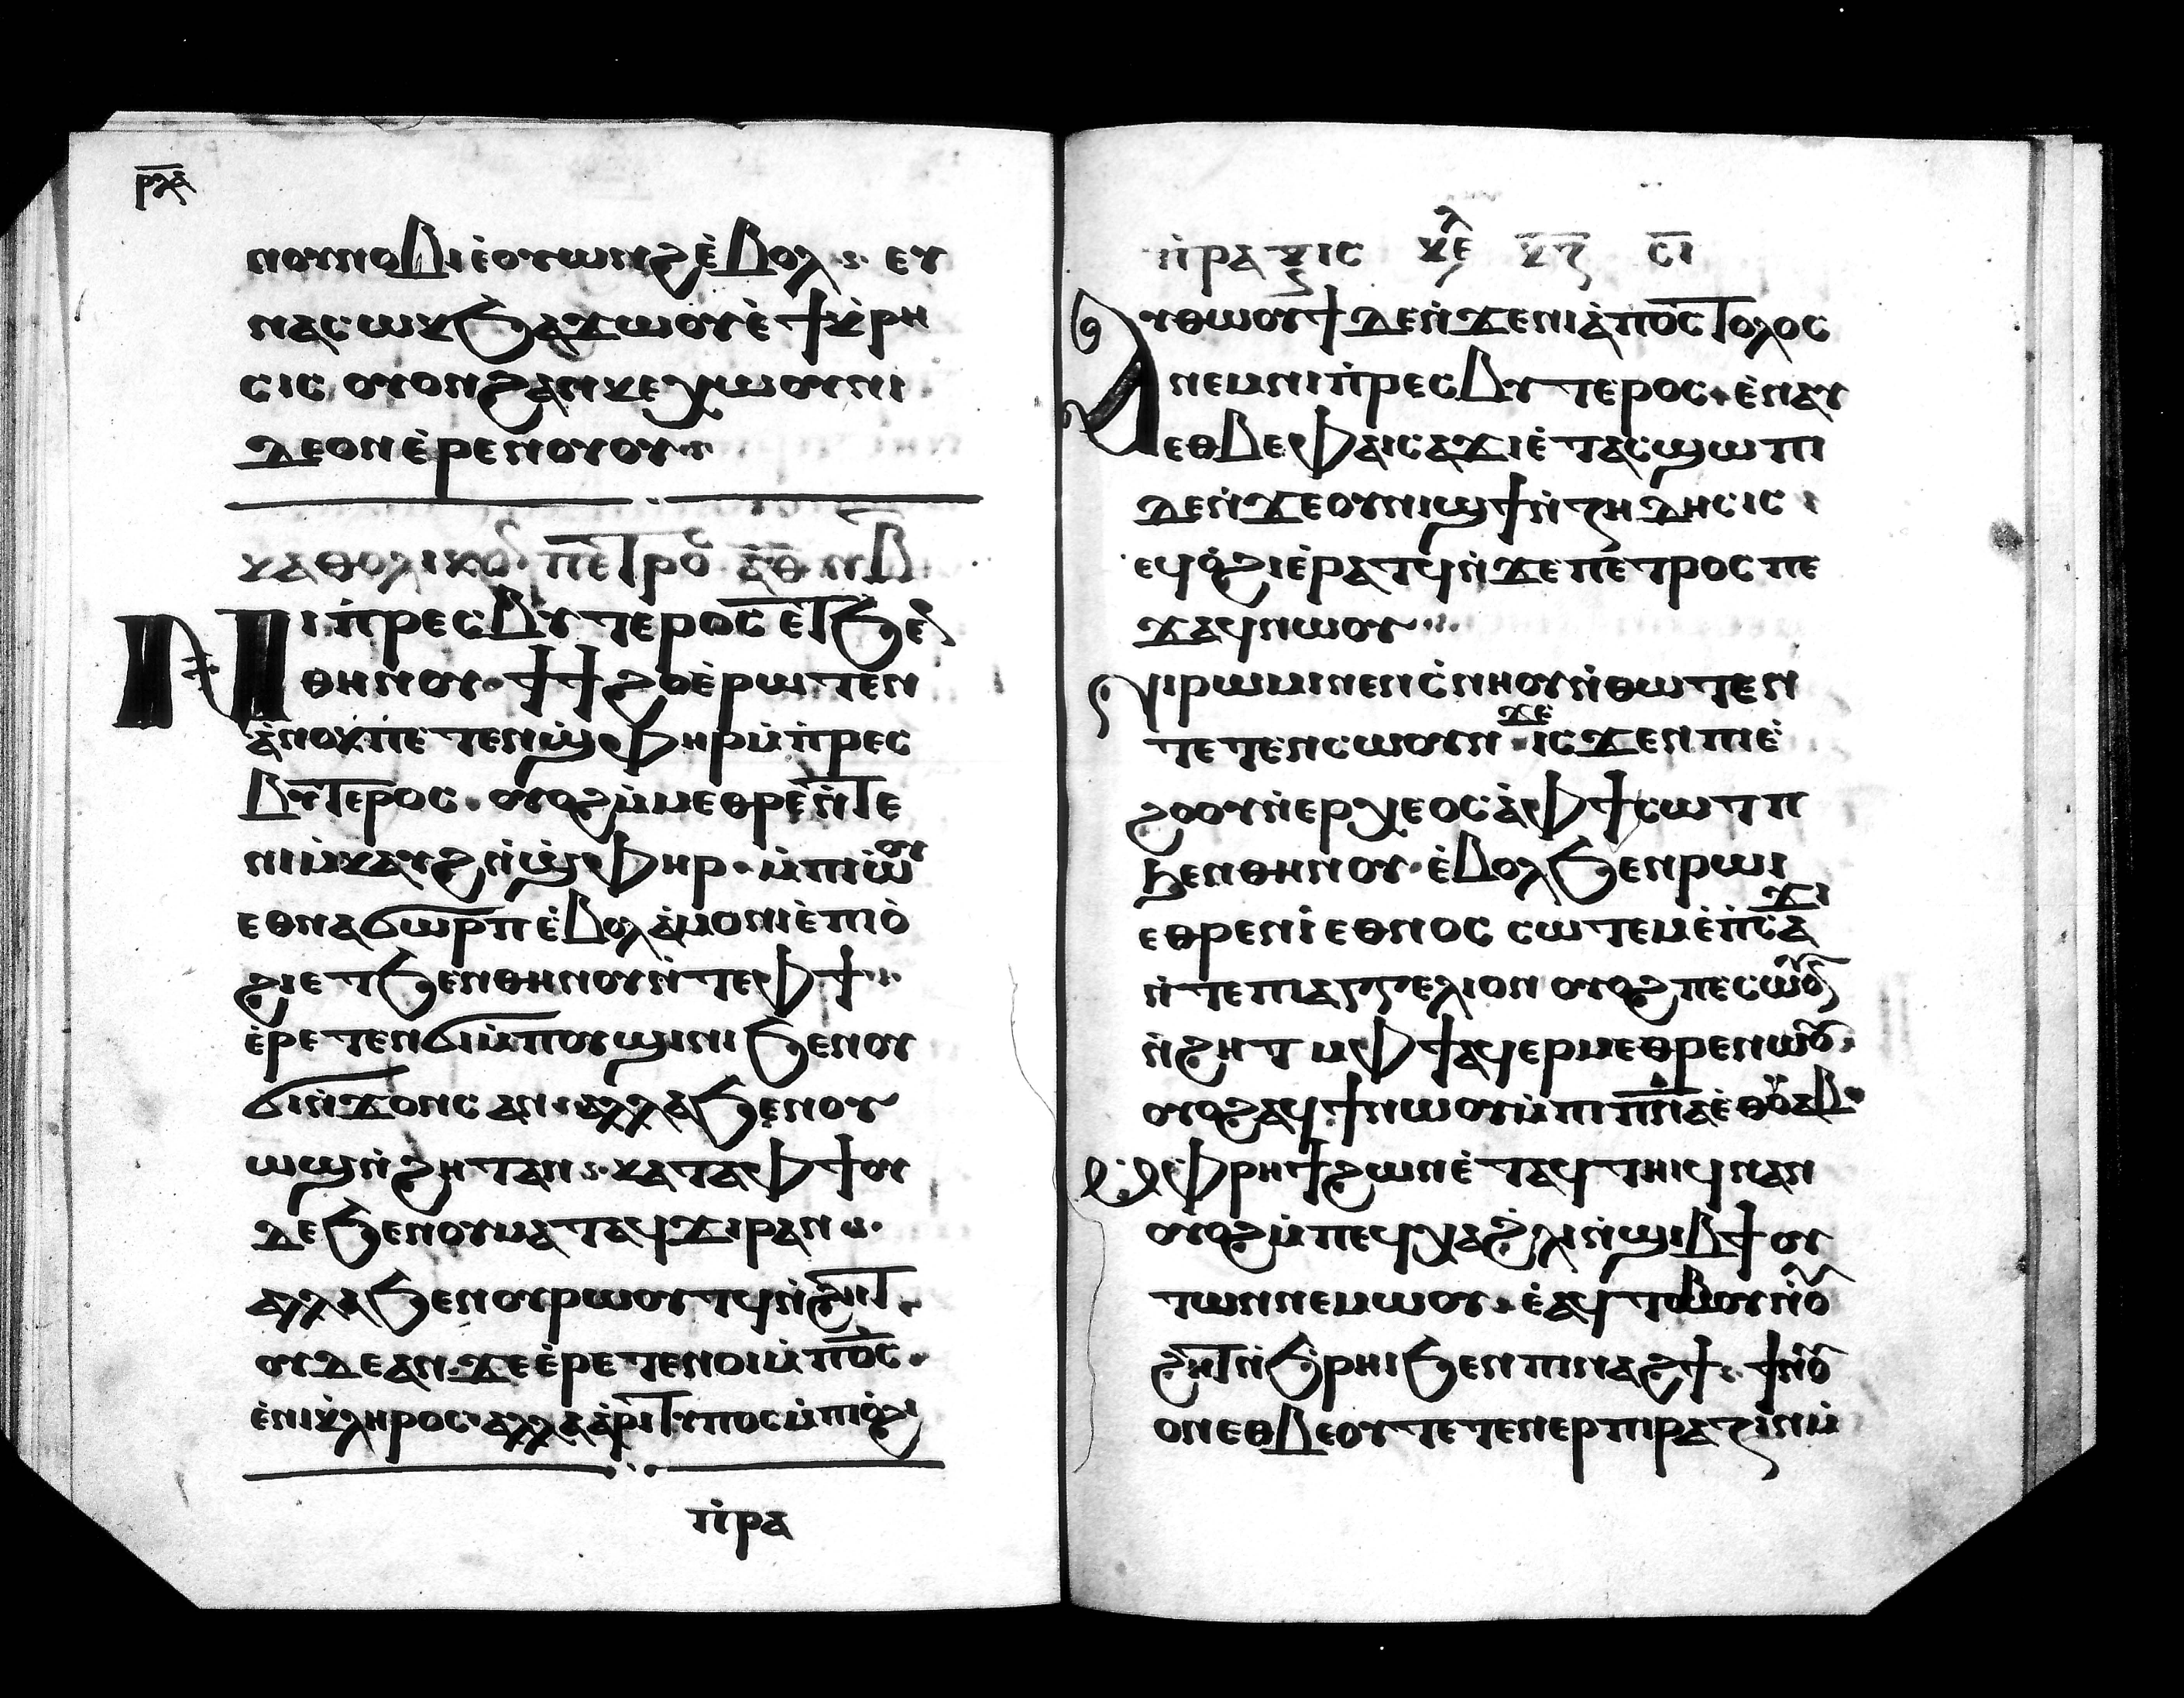 ⲣⲗⲁ
ⲛⲟⲩⲛⲟⲃⲓⲉ̀ⲟⲩⲱⲛϩⲉ̀ⲃⲟⲗ ⲉⲩ
ⲛⲁⲥⲱⲕϧⲁϫⲱⲟⲩⲉ̀ϯⲕ̀ⲣⲏ
ⲥⲓⲥ ⲟⲩⲟⲛϩⲁⲛⲕⲉⲭⲱⲟⲩⲛⲓ
ⲇⲉⲟⲛⲉ̀ⲣⲉⲛⲟⲩⲟⲩ
ⲕⲁⲑⲟⲗⲓⲕⲟ ⲡⲉⲧⲣⲟ ⲁ̅ ⲑ̅ ⲛⲃ
ⲛⲓⲡ̀ⲣⲉⲥⲃⲩⲧⲉⲣⲟⲥ ⲉⲧϧⲉⲛ
ⲑⲏⲛⲟⲩ ϯϯϩⲟⲉ̀ⲣⲱⲧⲉⲛ
ⲁ̀ⲛⲟⲕⲡⲉⲧⲉⲛϣ̀ⲫⲏⲣⲙ̀ⲡ̀ⲣⲉⲥ
ⲃⲩⲧⲉⲣⲟⲥ ⲟⲩⲟϩⲙ̀ⲙⲉⲑⲣⲉⲛ̀ⲧⲉ
ⲛⲓⲙ̀ⲕⲁⲩϩⲛ̀ϣ̀ⲫⲏⲣ ⲙ̀ⲡⲓⲱ̀ⲟⲩ
ⲉⲑⲛⲁϭⲱⲣⲡⲉ̀ⲃⲟⲗⲁ̀ⲙⲟⲛⲓⲉ̀ⲡⲓⲟ̀
ϩⲓⲉⲧϧⲉⲛⲑⲏⲛⲟⲩⲛ̀ⲧⲉⲫϯ
ⲉ̀ⲣⲉⲧⲉⲛϭⲓⲙ̀ⲡⲟⲩϣⲓⲛⲓϧⲉⲛⲟⲩ
ϭⲓⲛ̀ϫⲟⲛⲥ ⲁⲛ ⲁⲗⲗⲁϧⲉⲛⲟⲩ
ⲱϣⲛ̀ϩⲏⲧⲁⲛ ⲕⲁⲧⲁⲫϯⲟⲩ
ⲇⲉϧⲉⲛⲟⲩⲙⲁⲧⲁϥϫⲓⲣⲁⲛ
ⲁⲗⲗⲁϧⲉⲛⲟⲩⲣⲱⲟⲩⲧϥⲛ̀ϩⲏⲧ
ⲟⲩⲇⲉⲁⲛ ϫⲉⲉ̀ⲣⲉⲧⲉⲛⲟⲓⲙ̀ⲡ̅ⲟ̅ⲥ̅
ⲉ̀ⲛⲓⲕ̀ⲗⲏⲣⲟⲥ ⲁⲗⲗⲁⲁ̀ⲣⲓⲧⲩⲡⲟⲥⲙ̀ⲡⲓⲟ̀ϩⲓ
ⲡ̀ⲣⲁ
ⲡ̀ⲣⲁⲝⲓⲥ ⲕⲉ ⲕ̅ⲍ̅ ⲥ̅ⲓ
ⲁⲩⲑⲱⲟⲩϯⲇⲉⲛ̀ϫⲉⲛⲓⲁ̀ⲡⲟⲥⲧⲟⲗⲟⲥ
ⲛⲉⲙⲛⲓⲡ̀ⲣⲉⲥⲃⲩⲧⲉⲣⲟⲥ ⲉ̀ⲛⲁⲩ
ⲉⲑⲃⲉⲫⲁⲓⲥⲁϫⲓⲉ̀ⲧⲁⲥϣⲱⲡⲓ
ⲇⲉⲛ̀ϫⲉⲟⲩⲛⲓϣϯⲛ̀ⲍⲏⲇⲏⲥⲓⲥ
ⲉϥⲟ̀ϩⲓⲉ̀ⲣⲁⲧϥⲛ̀ϫⲉⲡⲉⲧⲣⲟⲥⲡⲉ
ϫⲁϥⲛⲱⲟⲩ
ⲛⲓⲣⲱⲙⲓⲛⲉⲛⲥ̀ⲛⲏⲟⲩⲛ̀ⲑⲱⲧⲉⲛ
ⲧⲉⲧⲉⲛⲥⲱⲟⲩⲛ ϫⲉ̀ ⲓⲥϫⲉⲛⲡⲓⲉ̀
ϩⲟⲟⲩⲛ̀ⲉⲣⲭⲉⲟⲥⲁ̀ⲫϯⲥⲱⲧⲡ
ϧⲉⲛⲑⲏⲛⲟⲩ ⲉ̀ⲃⲟⲗϧⲉⲛⲣⲱⲓ
ⲉⲑⲣⲉⲛⲓⲉⲑⲛⲟⲥ ⲥⲱⲧⲉⲙⲉ̀ⲡ̀ⲥⲁϫⲓ
ⲛ̀ⲧⲉⲡⲓⲁⲅⲅⲉⲗⲓⲟⲛ ⲟⲩⲟϩⲡⲉⲥⲱⲟⲩ
ⲛ̀ϩⲏⲧ ⲙⲫϯⲁϥⲉⲣⲙⲉⲑⲣⲉⲛⲱⲟⲩ
ⲟⲩⲟϩⲁϥϯⲛⲱⲟⲩⲙ̀ⲡⲓⲡ̅ⲛ̅ⲁ̅ⲉⲑⲟⲩⲁⲃ
ⲙ̀ⲫⲣⲏϯϩⲱⲛⲉ̀ⲧⲁϥⲧⲏⲓϥⲛⲁⲛ
ⲟⲩⲟϩⲙ̀ⲡⲉϥⲭⲁϩ̀ⲗⲓⲛ̀ϣⲓⲃϯⲟⲩ
ⲧⲱⲛⲛⲉⲙⲱⲟⲩ ⲉ̀ⲁϥⲧⲟⲩⲃⲟⲩⲛ̀ⲟⲩ
ϩⲏⲧⲛ̀ϧ̀ⲣⲏⲓϧⲉⲛⲡⲓⲛⲁϩϯ ϯⲛ̀ⲟⲩ
ⲟⲛⲉⲑⲃⲉⲟⲩⲧⲉⲧⲉⲛⲉⲣⲡⲓⲣⲁⲍⲓⲛⲙ̀